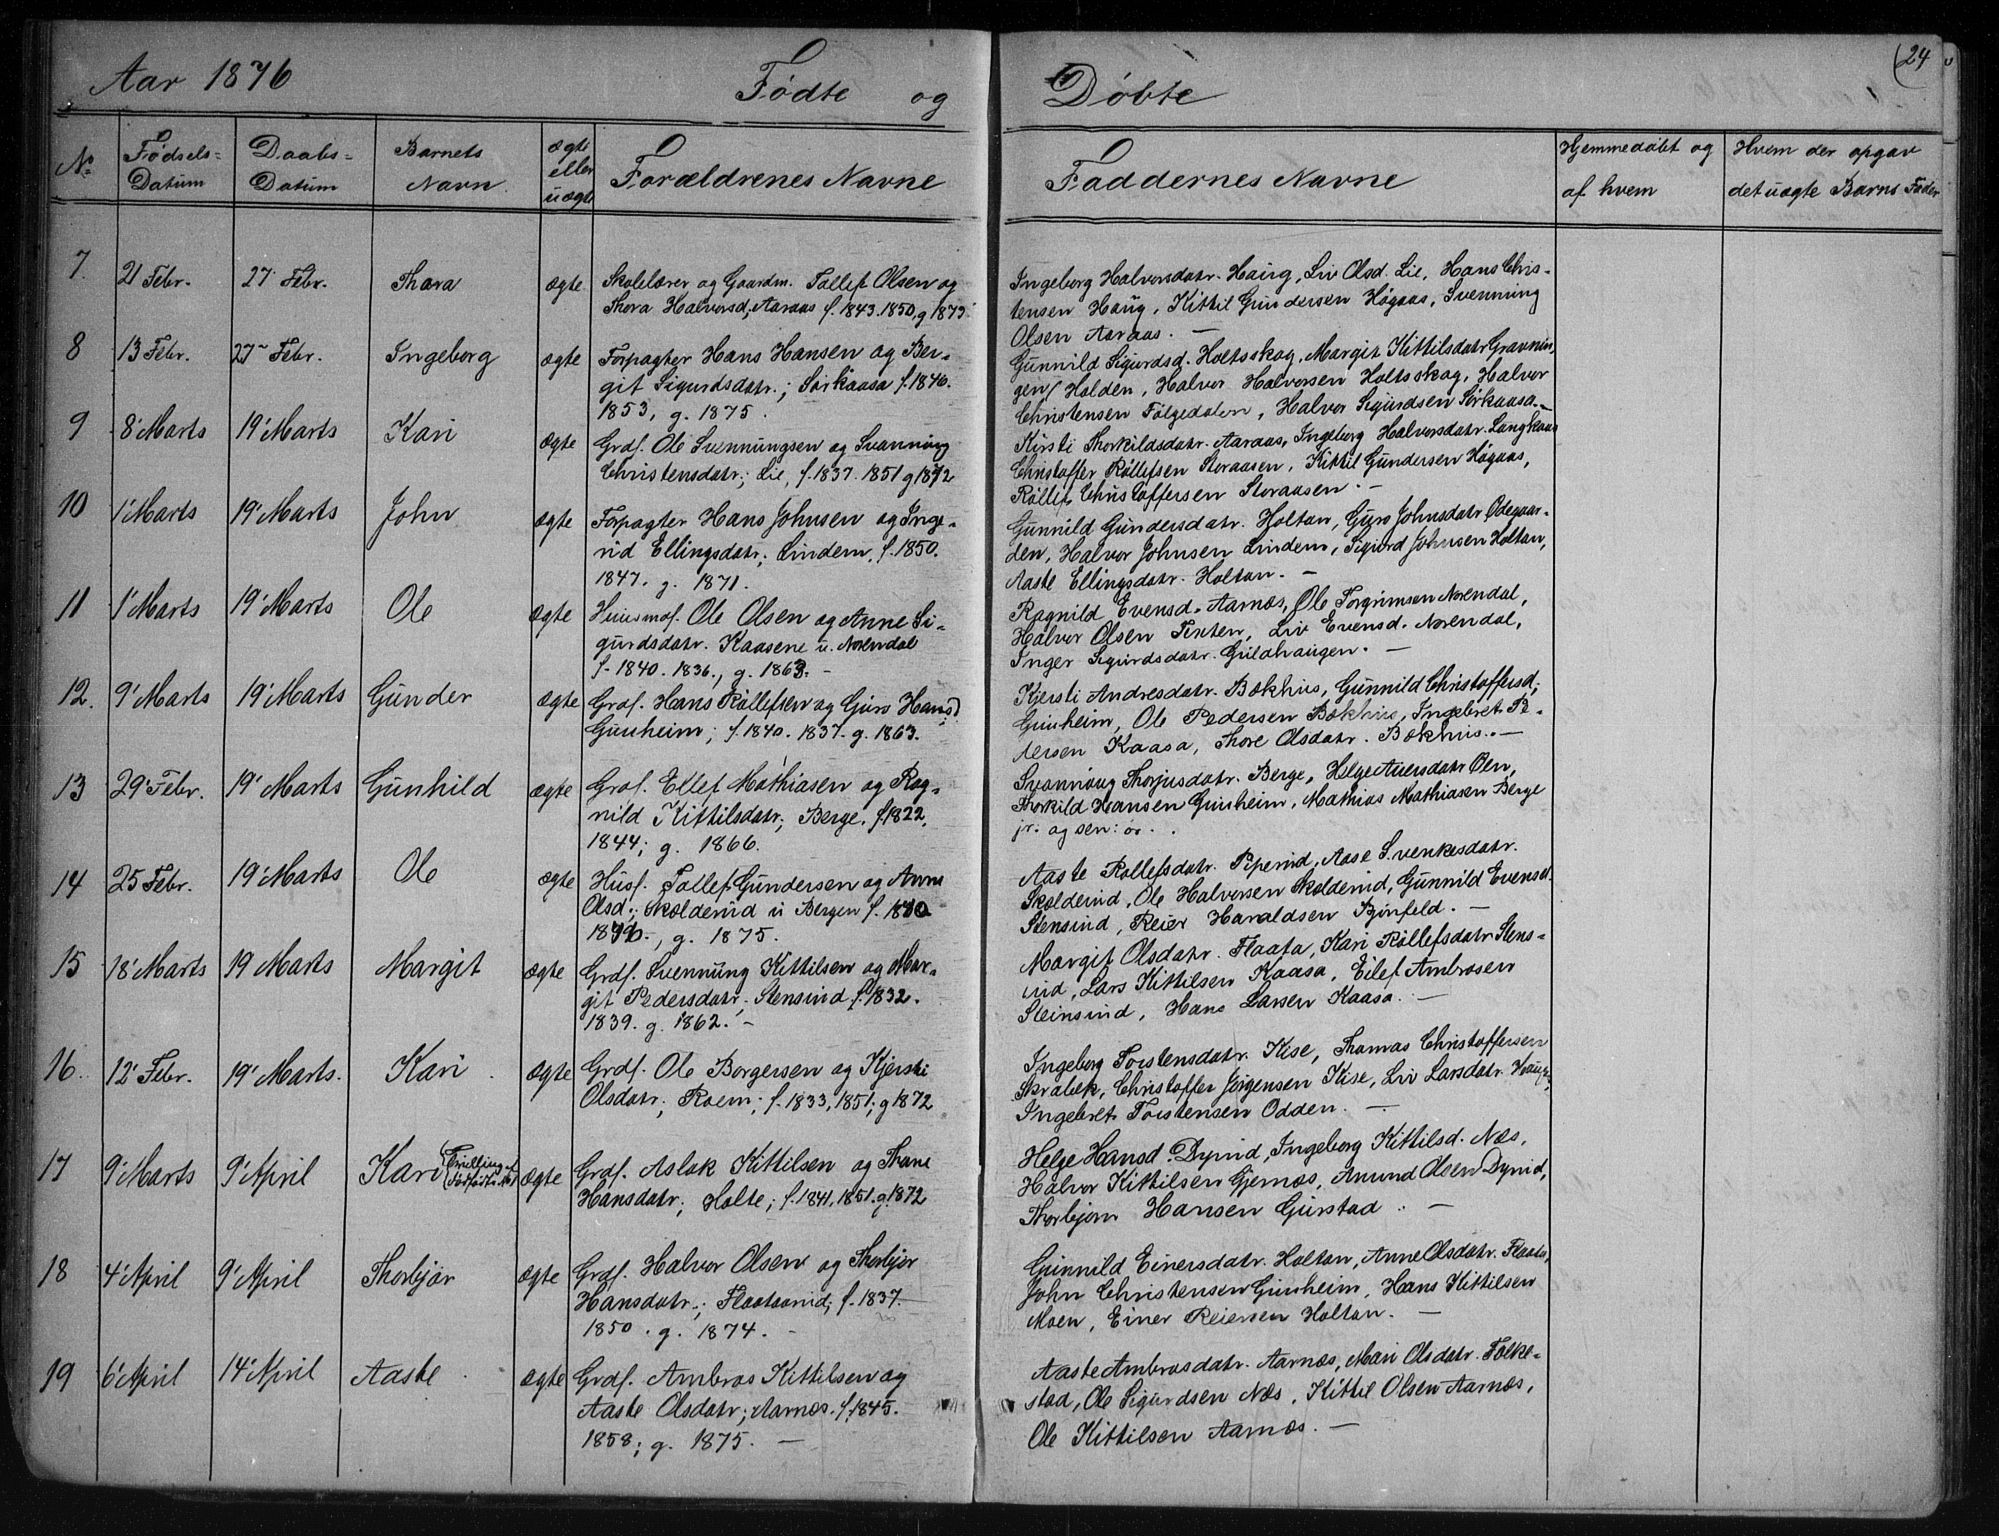 Aar 1876
Fødte og Døbte
24
No
Fødsels-
Datum
Daabs-
Datum
Barnets
Navn
ægte
eller
uægte
Forældrenes Navne
Faddernes Navne
Hjemmedøbt og
af hvem
Hvem der opgav
det uægte Barns Fader
7. 21 Febr. 27 Febr. Thara ægte
Skolelærer og Gaardm. Tollef Olsen og
Thora Halvorsd; Aaraas f. 1843. 1850, g 1873
Ingeborg Halvorsdatr. Haug, Liv Olsd. Lie, Hans Chris-
tensen Haug, Kittil Gundersen Høgaas, Svenning
Olsen Aaraas. —
8 13 Febr. 27 Febr. Ingeborg ægte
Forpagter Hans Hansen og Ber-
git Sigurdsdatr.; Sørkaasa f. 1846.
1853, g. 1875.
Gunnild Sigurdsd. Holtsskog, Margit Kittilsdatr Gravnin
gen/Holden, Halvor Halvorsen Holtsskog, Halvor
Christensen Følgedalen, Halvor Sigurdsen Sørkaasa.—
9 8' Marts 19' Marts Kari ægte
Grdf. Ole Svennungsen og Svanning
Christensdatr; Lie, f. 1837. 1851 g 1872
Kirsti Thorkildsdatr. Aaraas, Ingeborg Halvorsdatr. Langkaas
Christoffer Rollefsen Storaasen, Kittil Gundersen Høgaas,
Rollef Christoffersen Storaasen. —
10 1' Marts 19' Marts John ægte
Forpagter Hans Johnsen og Inge-
rid Ellingsdatr; Lindem, f. 1850.
1847. g. 1871.
Gunnild Gundersdatr. Holtan, Guro Johnsdatr Ødegaar-
den, Halvor Johnsen Lindem, Sigurd Johnsen Holtan,
Aaste Ellingsdatr. Holtan. —
11 1' Marts 19' Marts Ole ægte
Huusmd. Ole Olsen og Anne Si-
gurdsdatr. Kaasene u. Norendal
f. 1840. 1836., g. 1863. —
Ragnild Evensd. Aarnæs, Ole Torgrimsen Norendal,
Halvor Olsen Tveten, Liv Evensd. Norendal,
Inger Sigurdsdatr. Guldhaugen. —
12. 9' Marts 19' Marts Gunder ægte
Grdf. Hans Rollefsen og Guro Hansd
Gunheim; f. 1840. 1837. g. 1863.
Kjersti Andresdatr. Bøkhus, Gunnild Christoffersd;
Gunheim, Ole Pedersen Bøkhus, Ingebret Pe-
dersen Kaasa, Thore Olsdatr. Bøkhus. —
13 29' Febr. 19' Marts Gunhild ægte
Grdf. Ellef Mathiasen og Rag-
nild Kittilsdatr; Berge. f. 1822.
1844; g. 1866.
Svannaug Thorjusdatr. Berge, Helge Aversdatr Øen,
Thorkild Hansen Gunheim, Mathias Mathiasen Berge
jr. og sen: ør.
14 25 Febr. 19' Marts Ole ægte
Husf. Tollef Gundersen og Anne
Olsd.; Skolderud u Bergen f.
g. 1875.
Aaste Rollefsdatr. Piperud, Aase Svenkesdatr.
Skolderud, Ole Halvorsen Skolderud, Gunnild Evensd.
Stensrud, Reier Haraldsen Bjønfeld. —
15 18' Marts 19 Marts Margit ægte
Grdf. Svennung Kittilsen og Mar-
git Pedersdatr; Stensrud f. 1832.
1839. g. 1862. —
Margit Olsdatr. Flaata, Kari Rollefsdatr Stens-
rud, Lars Kittilsen Kaasa, Eilef Ambrosen
Steinsrud, Hans Larsen Kaasa. —
16. 12' Febr. 19' Marts. Kari ægte
Grdf. Ole Borgersen og Kjersti
Olsdatr; Roem; f. 1833, 1851; g 1872
Ingeborg Torstensdatr. Kise, Thomas Christoffersen
Skrabek, Christoffer Jørgensen Kise, Liv Larsdatr.
Ingebret Torstensen Odden. —
17 9' Marts 9' April Kari ægte
Grdf. Aslak Kittilsen og Thone
Hansdatr; Holte; f. 1841, 1851. g. 1872
Helge Hansd. Dyrud, Ingeborg Kittilsd. Næs,
Halvor Kittilsen Gjernæs, Amund Olsen Dyrud,
Thorbjørn Hansen Gurstad. —
18 4' April 9' April Thorbjør ægte
Grdf. Halvor Olsen og Thorbjør
Hansdatr.; f. 1837.
1850. g. 1874. —
Gunnild Einersdatr. Holtan, Anne Olsdatr. Flaata,
John Christensen Gunheim, Hans Kittilsen
Moen, Einer Reiersen Holtan. —
19 6' April 14' April Aaste ægte
Grdf. Ambros Kittilsen og
Aaste Olsdatr; Aarnæs. f. 1845.
1858; g. 1875. —
Aaste Ambrosdatr. Aarnæs, Mari Olsdatr. Folke-
stad, Ole Sigurdsen Næs, Kittil Olsen Aarnæs,
Ole Kittilsen Aarnæs. —